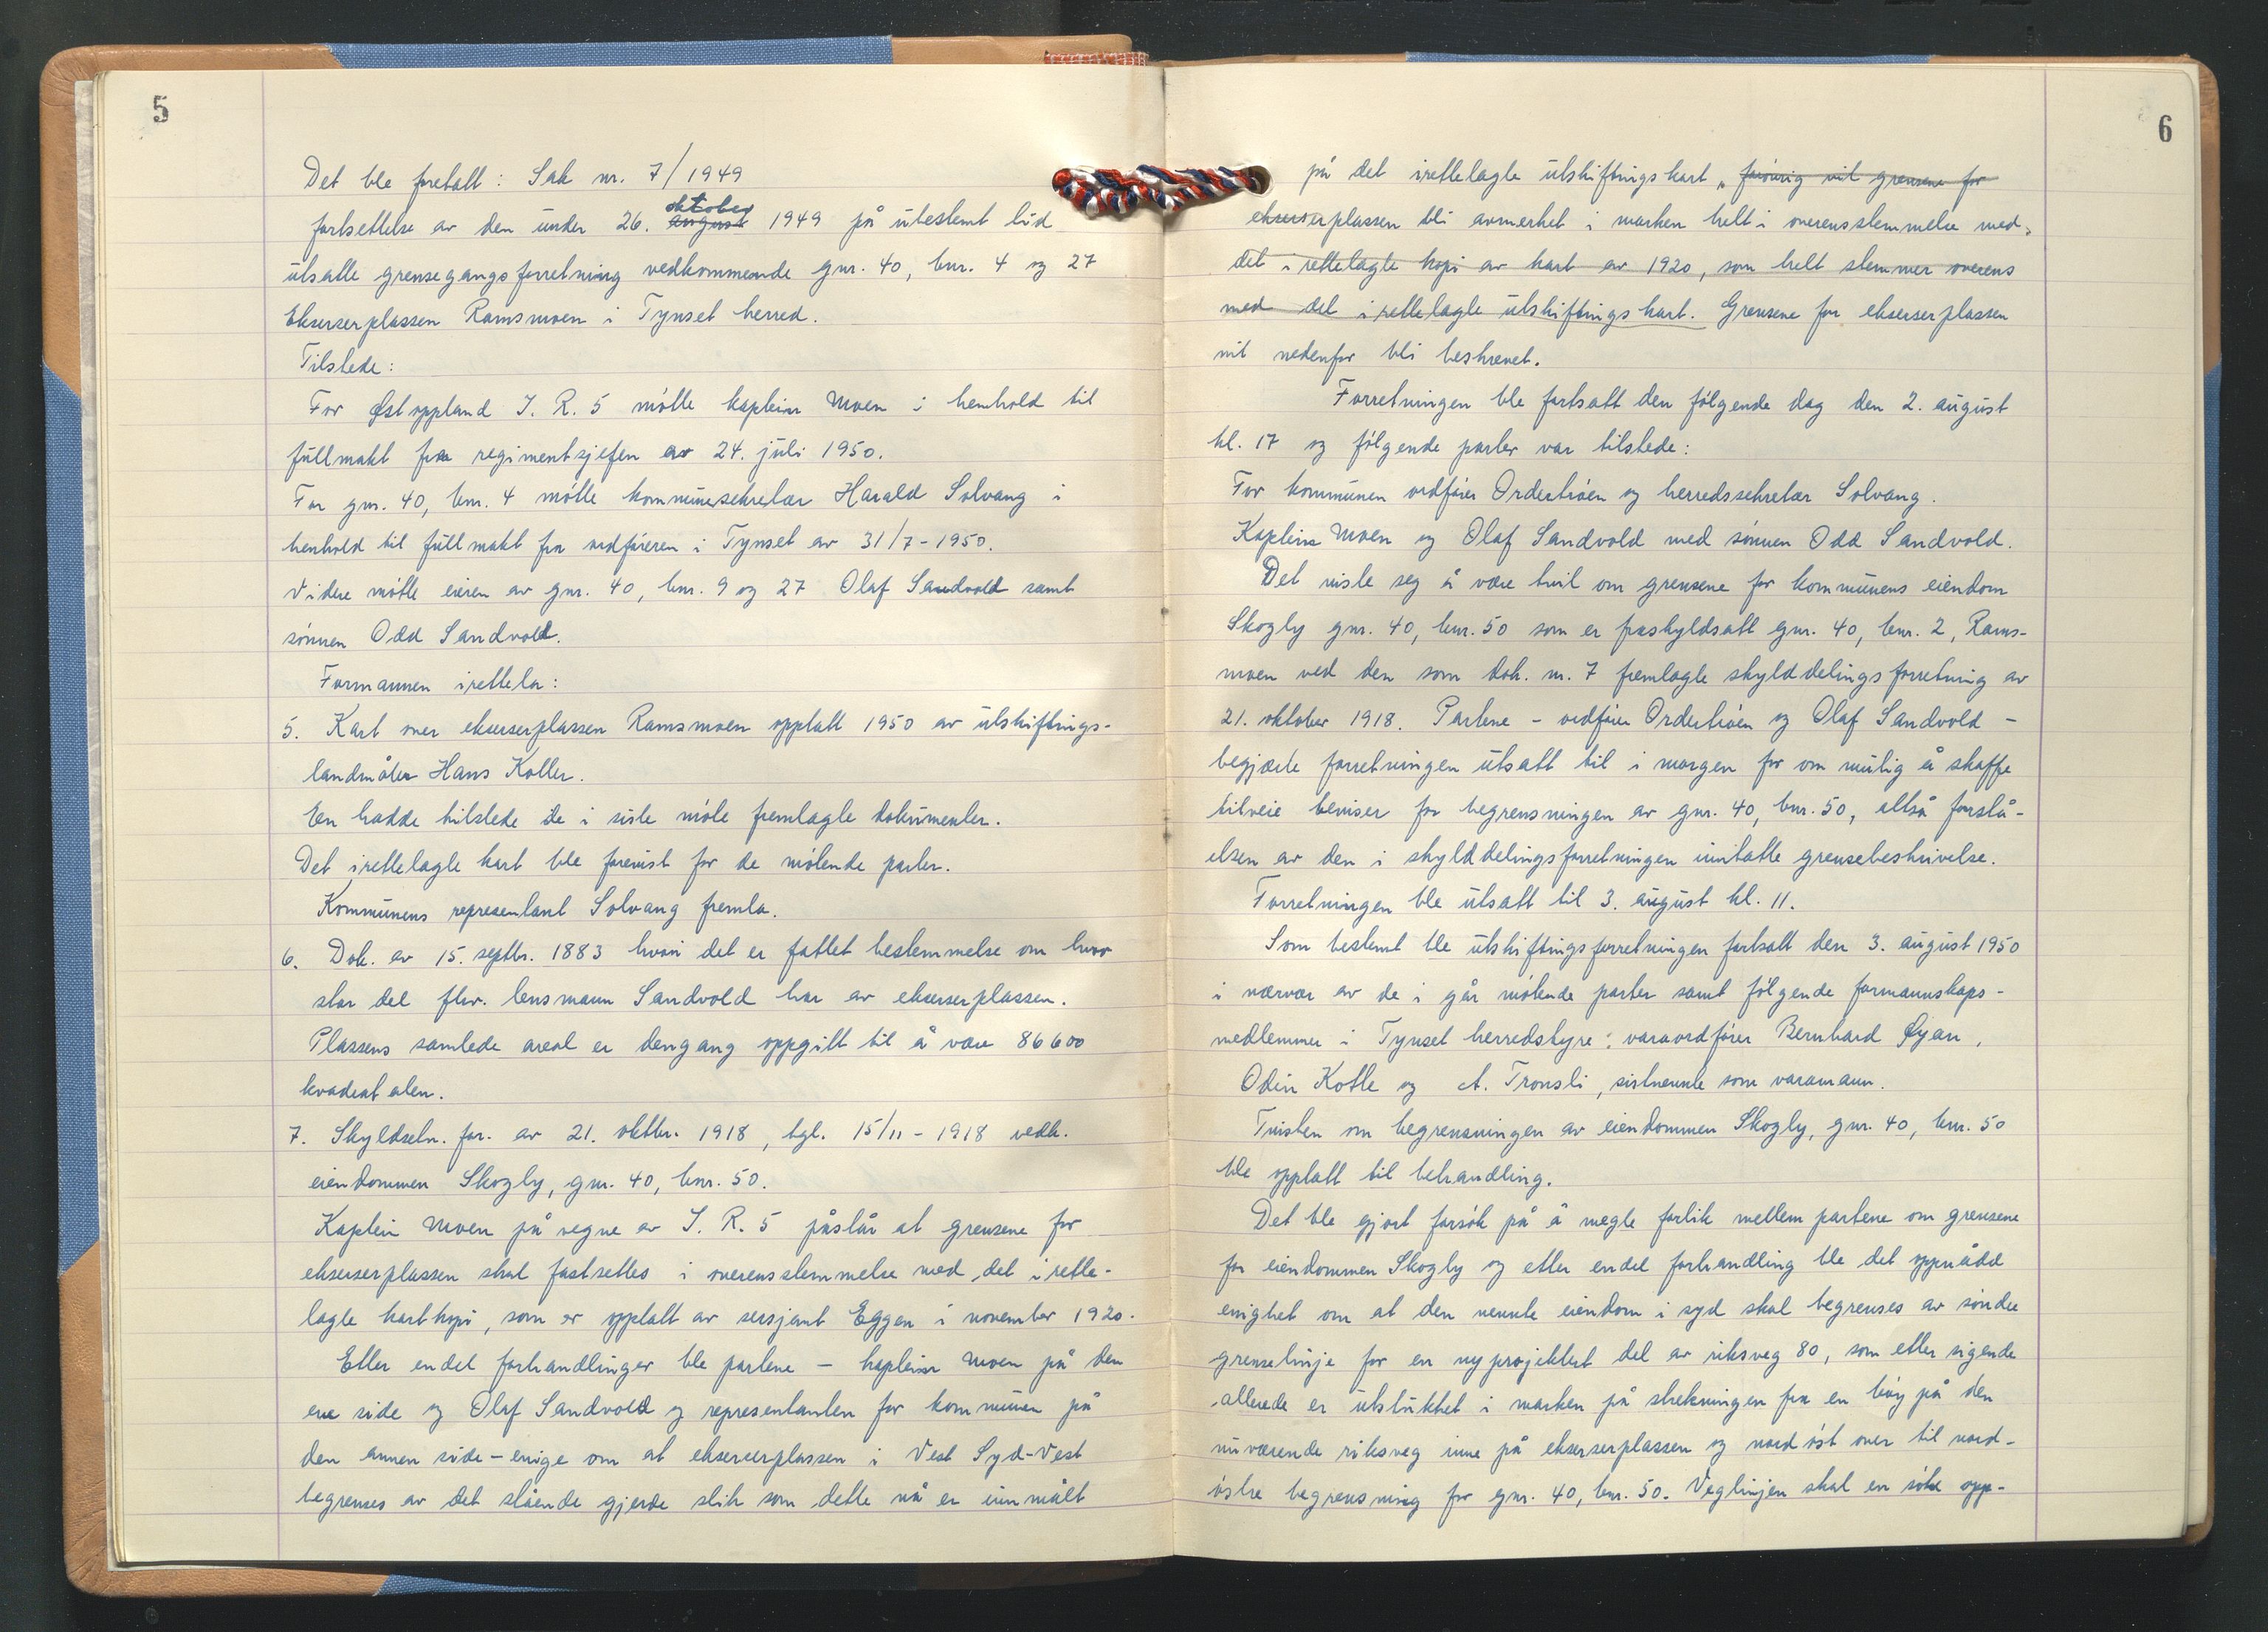 5
Det ble foretatt: Sak nr. 7/1949
oktober
fortsettelse av den under 26. august 1949 på ubestemt tid
utsatte grensegangsforretning vedkommende gnr. 40, bnr. 4 og 27
Ekserserplassen Ramsmoen i Tynset herred.
Tilstede:
For Østoppland I. R. 5 møtte kaptein Moen i henhold til
fullmakt fra regimentsjefen av 24. juli 1950.
For gnr. 40, bnr. 4 møtte kommunesekretær Harald Solvang i
henhold til fullmakt fra ordføreren i Tynset av 31/7-1950.
Videre møtte eieren av gnr. 40, bnr. 9 og 27 Olaf Sandvold samt
sønnen Odd Sandvold.
Formannen irettela:
5. Kart over ekserserplassen Ramsmoen opptatt 1950 av utskiftnings-
landmåler Hans Koller.
En hadde tilstede de i siste møte fremlagte dokumenter.
Det irettelagte kart ble forevist for de møtende parter.
Kommunens representant Solvang fremla.
6. Dok. av 15. septbr. 1883 hvori det er fattet bestemmelse om hvor
stor del fhv. lensmann Sandvold har av ekserserplassen.
Plassens samlede areal er dengang oppgitt til å være 86600
kvadrat alen.
7. Skyldseln. for. av 21. oktbr. 1918, tgl. 15/11-1918 vedk.
eiendommen Skogly, gnr. 40, bnr. 50.
Kaptein Moen på vegne av I. R. 5 påstår at grensene for
ekserserplassen skal fastsettes i overensstemmelse med det irette-
lagte kartkopi, som er opptatt av sersjant Eggen i november 1920.
Etter endel forhandlinger ble partene - kaptein Moen på den
ene side og Olaf Sandvold og representanten for kommunen på
den annen side - enige om at ekserserplassen i Vest Syd-Vest
begrenses av det stående gjerde slik som dette nå er innmålt
6
på det irettelagte utskiftningskart „ forøvrig vil grensene for
ekserserplassen bli avmerket i marken helt i overensstemmelse med
det irettelagte kopi av kart av 1920, som helt stemmer overens
med det irettelagte utskiftningskart. Grensene for ekserserplassen
vil nedenfor bli beskrevet.
Forretningen ble fortsatt den følgende dag den 2. august
kl. 17 og følgende parter var tilstede:
For kommunen ordfører Ordertrøen og herredssekretær Solvang.
Kaptein Moen og Olaf Sandvold med sønnen Odd Sandvold.
Det viste seg å være tvil om grensene for kommunens eiendom
Skogly gnr. 40, bnr. 50 som er fraskyldsatt gnr. 40, bnr. 2, Rams-
moen ved den som dok. nr. 7 fremlagte skylddelingsforretning av
21. oktober 1918. Partene - ordfører Ordertrøen og Olaf Sandvold -
begjærte forretningen utsatt til i morgen for om mulig å skaffe
tilveie beviser for begrensningen av gnr. 40, bnr. 50, altså forstå-
elsen av den i skylddelingsforretningen inntatte grensebeskrivelse.
Forretningen ble utsatt til 3. august kl. 11.
Som bestemt ble utskiftningsforretningen fortsatt den 3. august 1950
i nærvær av de i går møtende parter samt følgende formannskaps-
medlemmer i Tynset herredstyre: varaordfører Bernhard Øyan,
Odin Kotte og A. Tronsli, sistnevnte som varamann.
Tvisten om begrensningen av eiendommen Skogly, gnr. 40, bnr. 50
ble opptatt til behandling.
Det ble gjort forsøk på å megle forlik mellem partene om grensene
for eiendommen Skogly og etter endel forhandling ble det oppnådd
enighet om at den nevnte eiendom i syd skal begrenses av søndre
grenselinje for en nyprojektert del av riksveg 80, som etter sigende
allerede er utstukket i marken på strekningen fra en bøy på den
nuværende riksveg inne på ekserserplassen og nordøst over til nord-
østre begrensning for gnr. 40, bnr. 50. Veglinjen skal en søke opp-